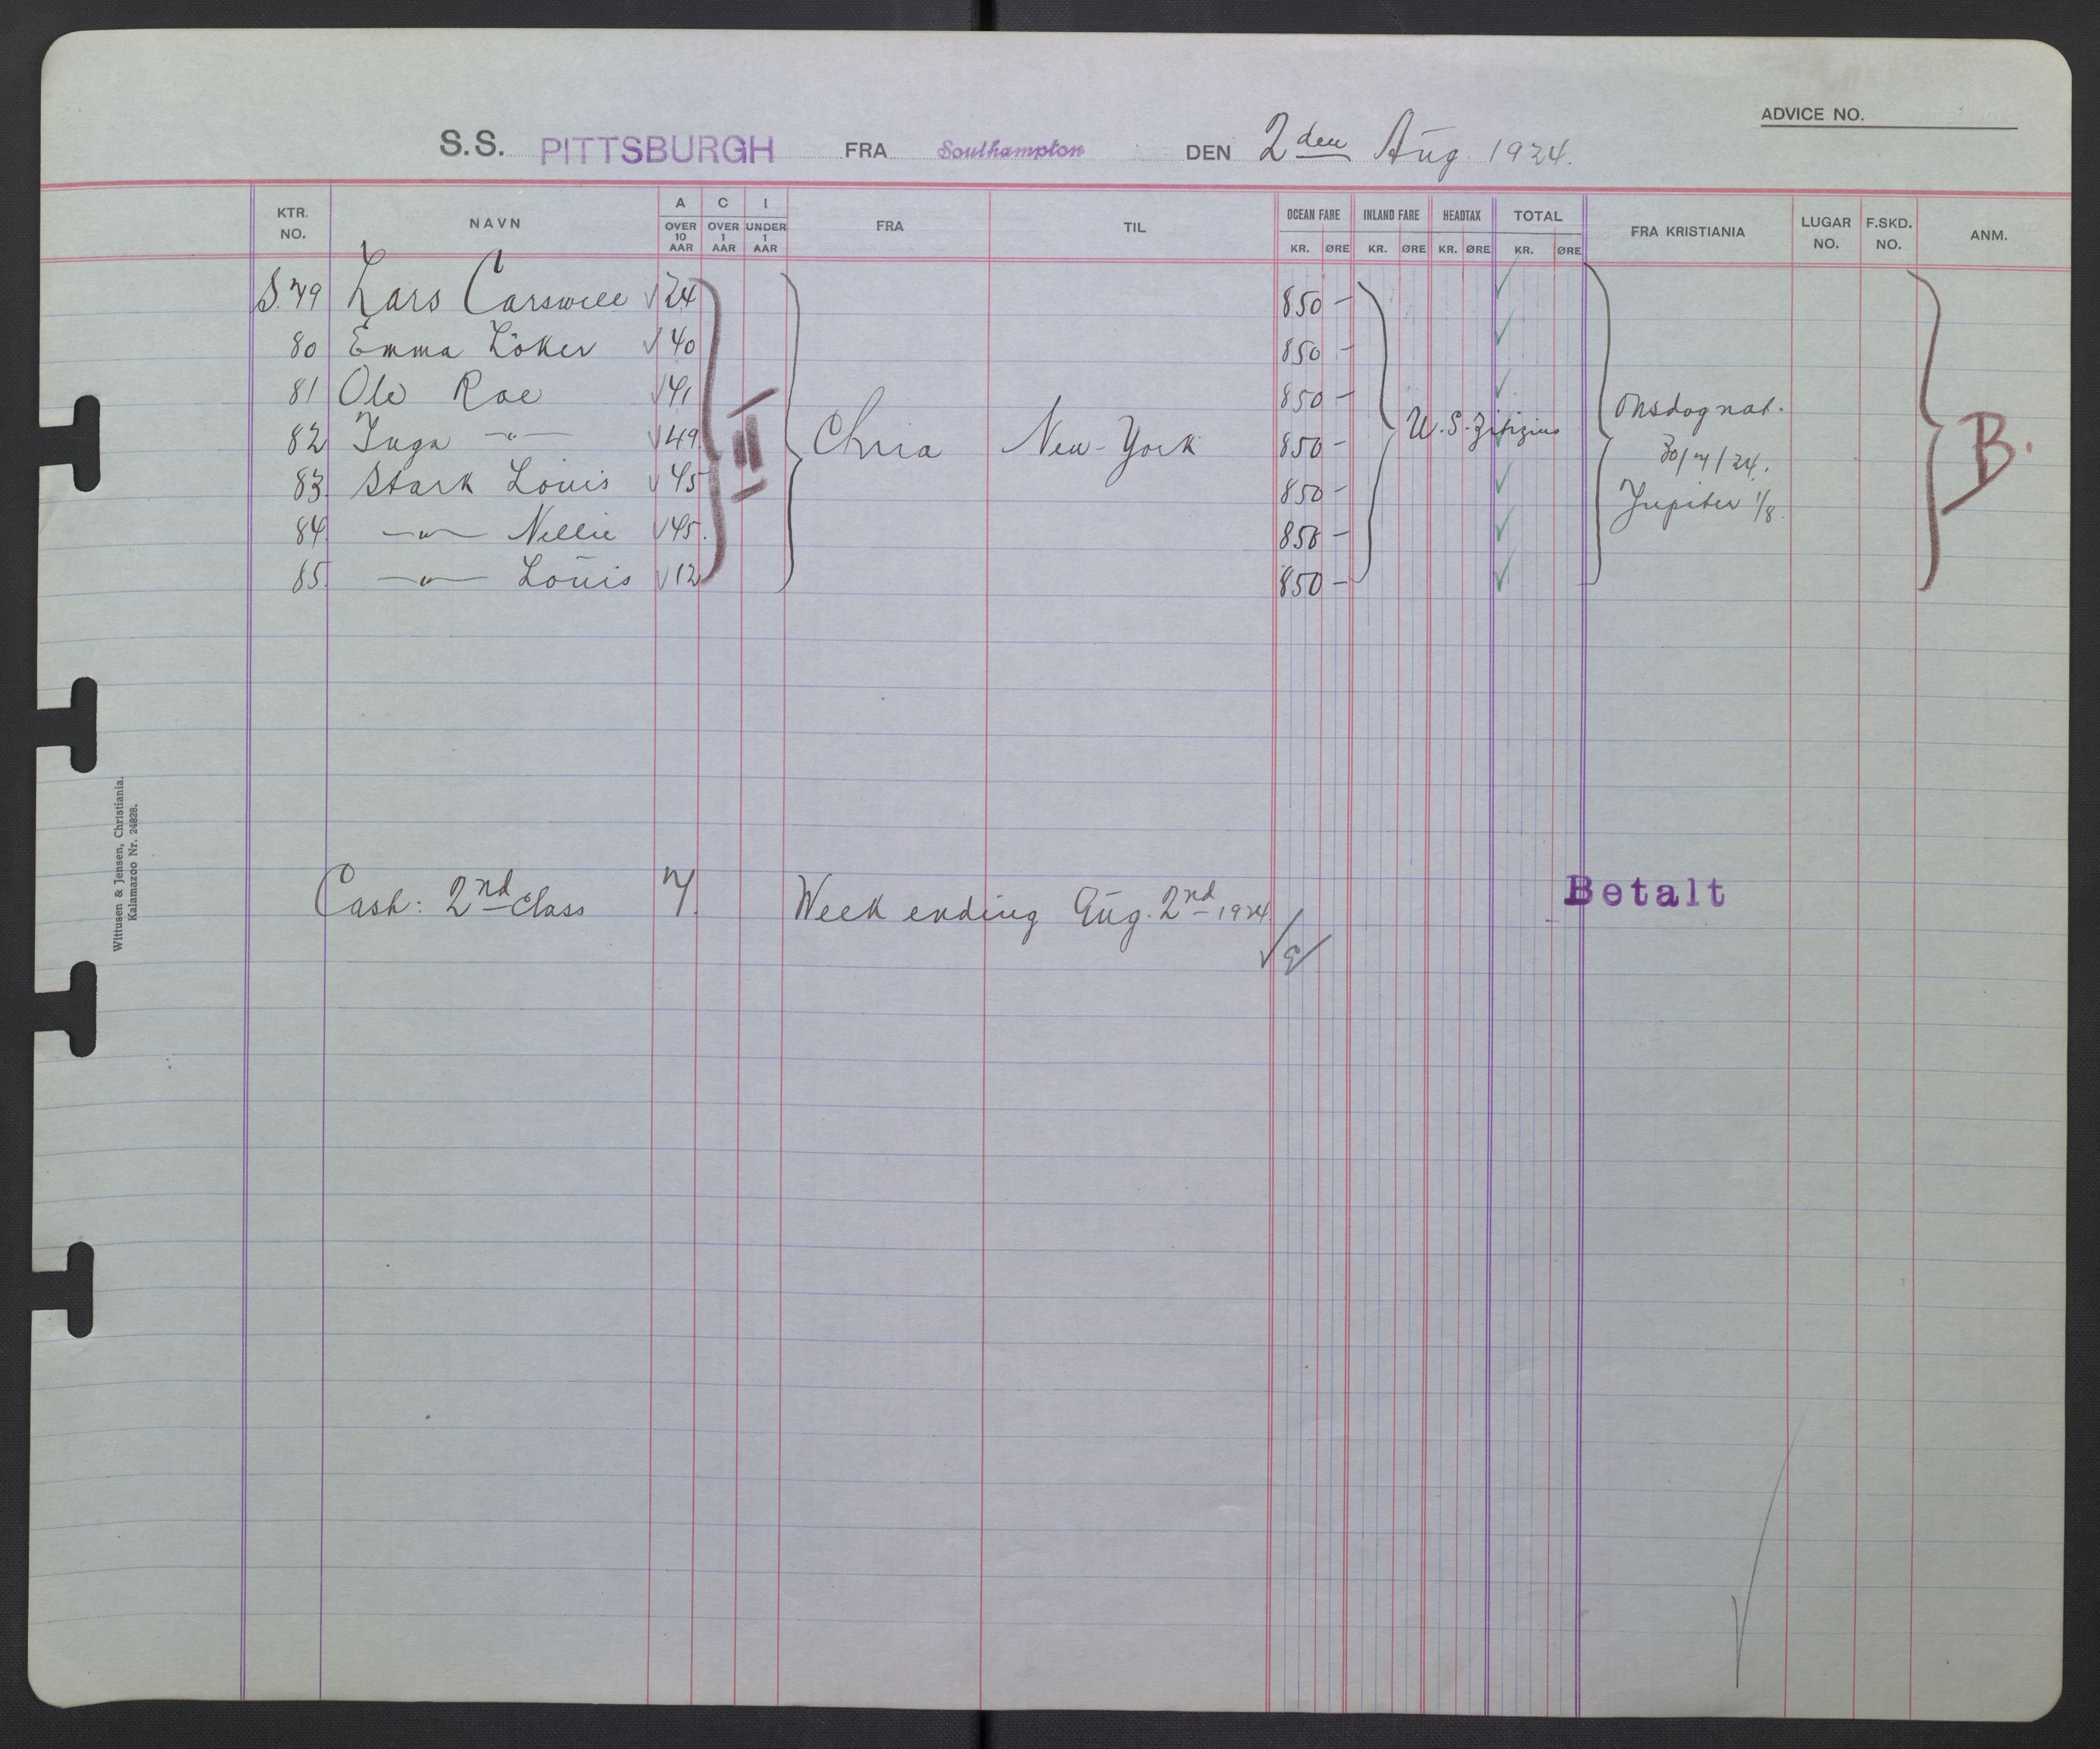 ADVICE NO.
S.S. PITTSBURGH FRA Southampton DEN 2den Aug. 1924.
KTR. NO. NAVN A OVER 10 AAR C OVER 1 AAR I UNDER 1 AAR FRA TIL OCEAN FARE KR. ØRE INLAND FARE KR. ØRE HEADTAX KR. ØRE TOTAL KR. ØRE FRA KRISTIANIA LUGAR NO. F.SKD. NO. ANM.
S. 79 Lars Carswell √ 24 850 –
80 Emma Löker √ 40 850 –
81 Ole Roe √ 41 850 – Onsdag nat.
82 Inga –"– √ 49 II Chria New-York 850 – U.S. Zitizius 30/7/24. B.
83. Stark Louis √ 45 850 – Jupiter 1/8.
84. –"– Nellie √ 45. 850 –
85. –"– Louis √ 12 850 –
Cash: 2nd class 7. Week ending Aug. 2nd 1924. Betalt
Wittusen & Jensen, Christiania.
Kalamazoo Nr. 24828.